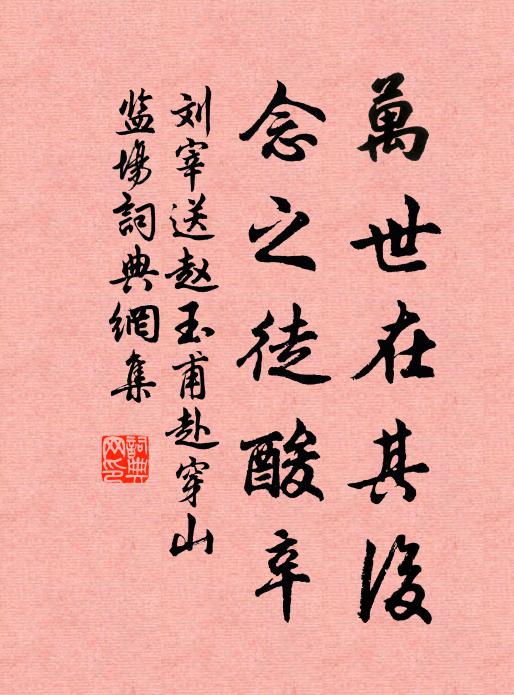 萬世在其後
念之徒酸辛
刘宰送赵玉甫赴穿山
监场詞典網集
詞典网印